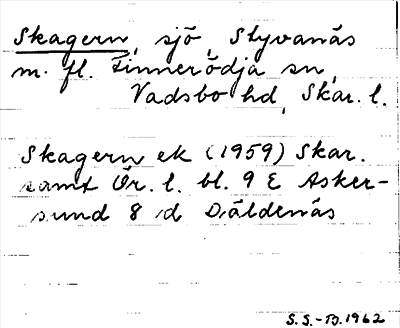 Skagern, sjö, Styvanäs
m. fl. Finnerödja sn,
Vadsbo hd, Skar. l.
Skagern ek (1959) Skar.
samt Ör. l. bl. 9 E Asker-
sund 8 d Däldenäs
S.S.-B. 1962